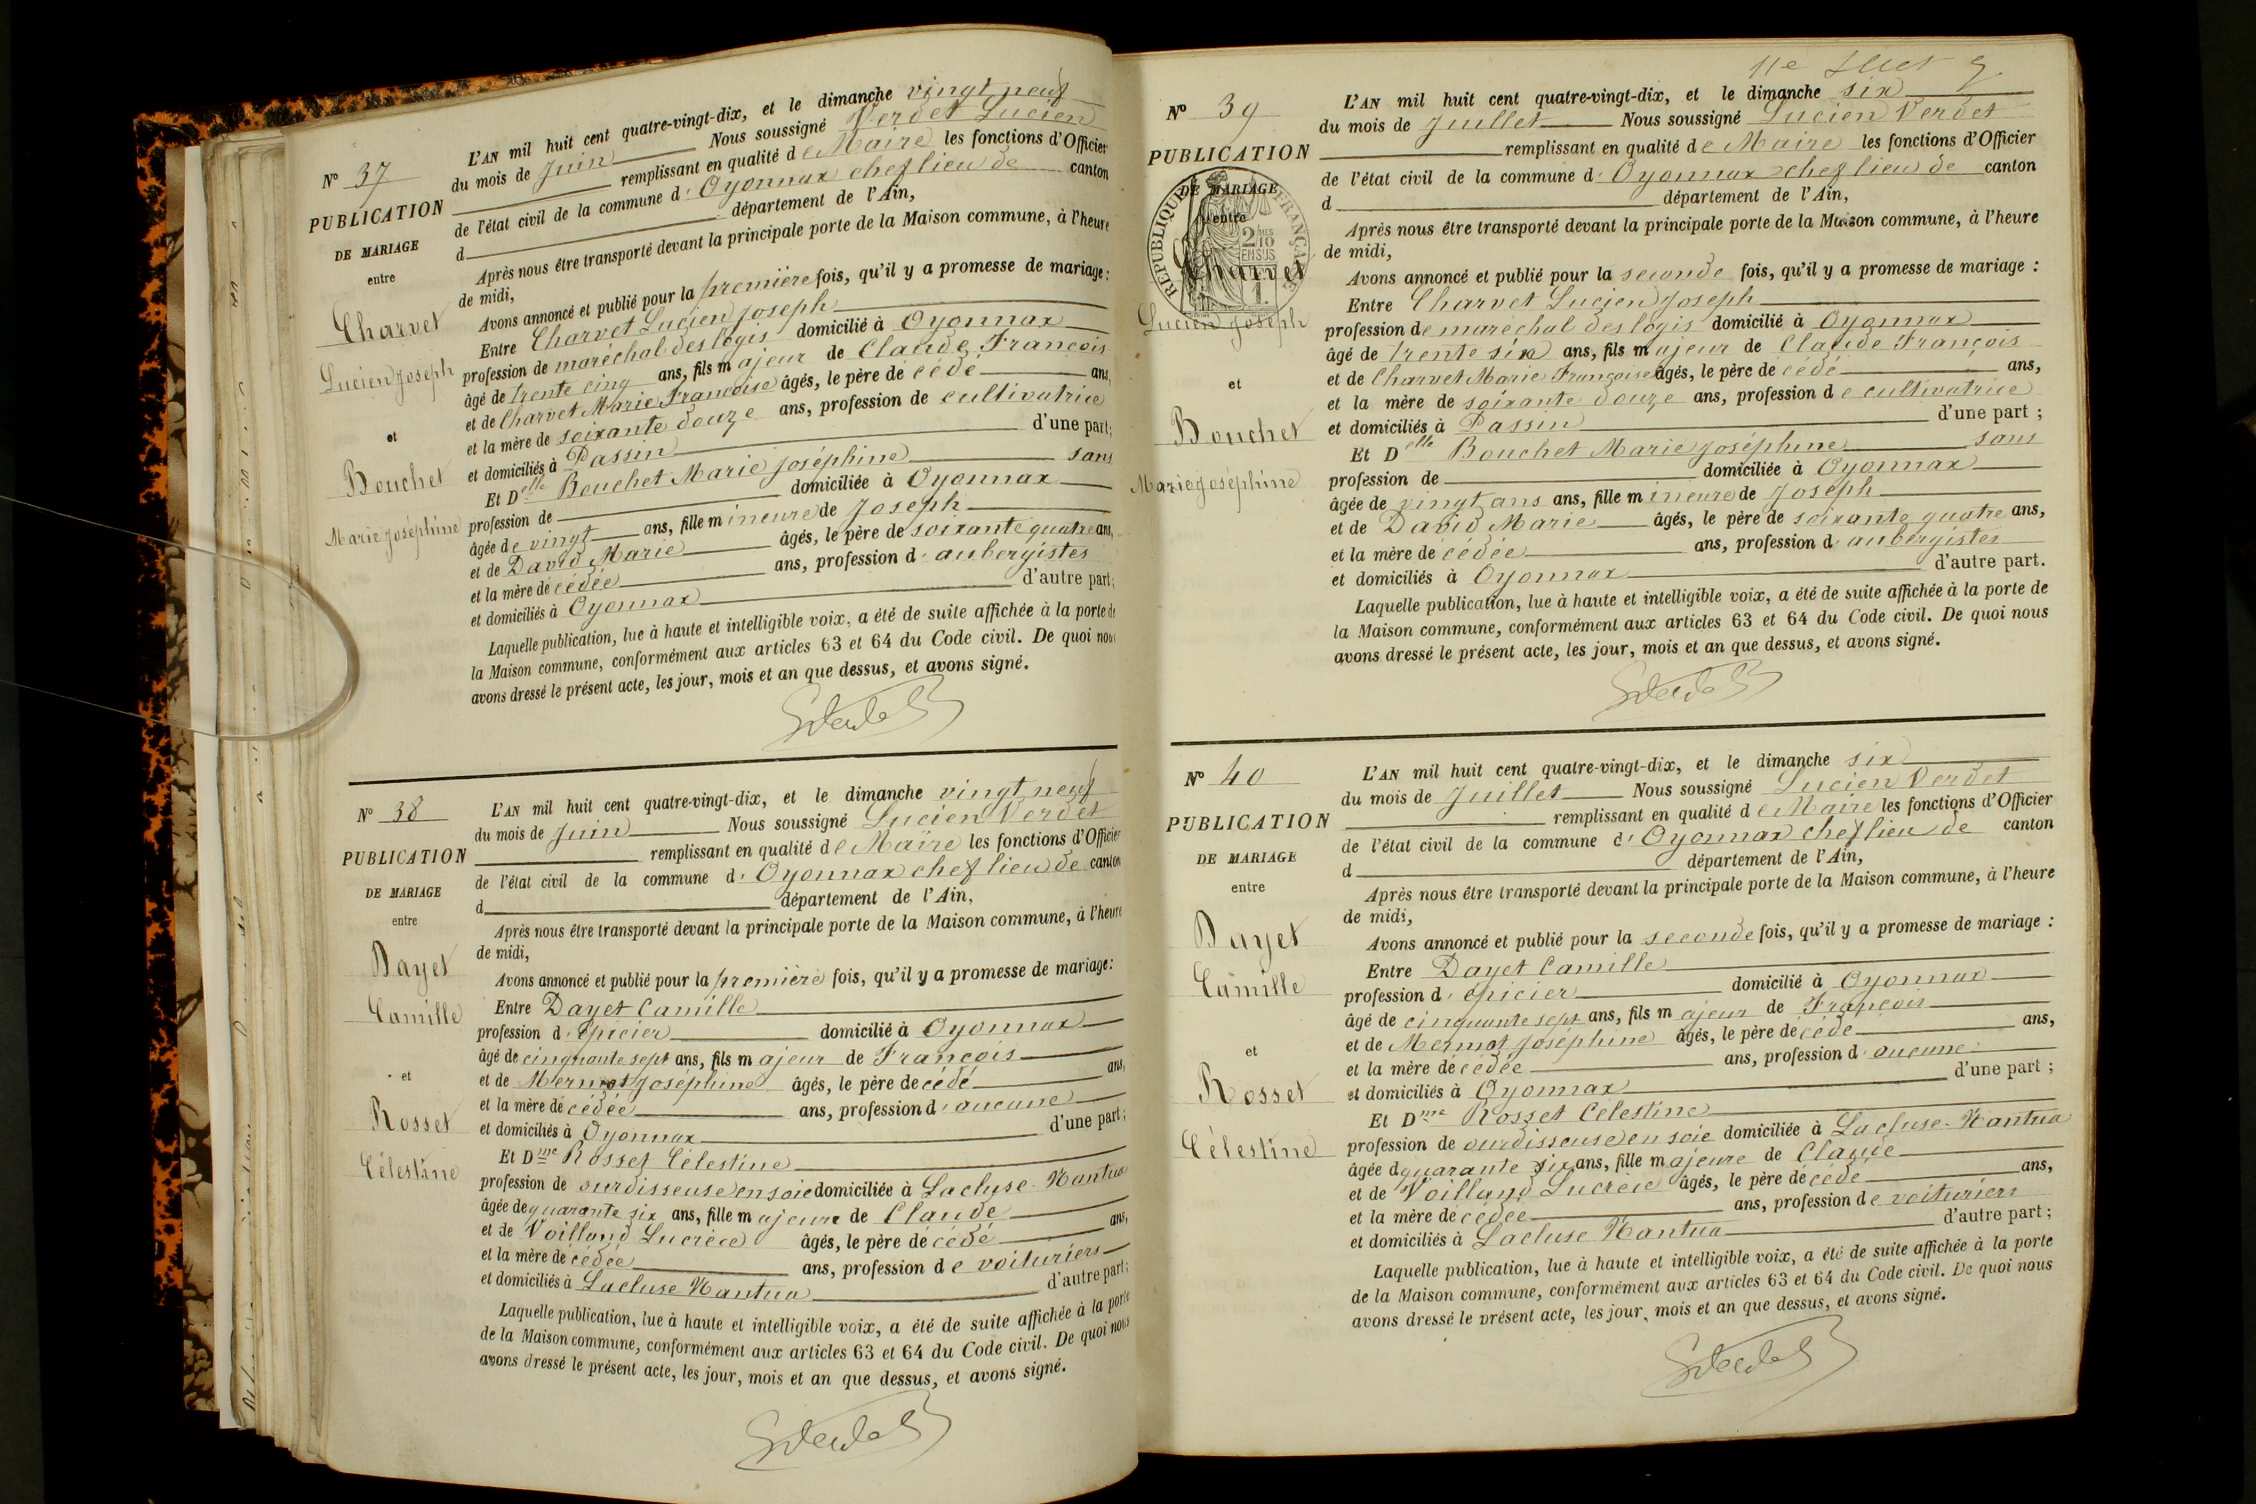 N° 37
PUBLICATION
DE MARIAGE
entre
Charvet
Lucien Joseph
et
Bouchet
Marie Joséphine
L'AN mil huit cent quatre-vingt-dix, et le dimanche vingt neuf
du mois de Juin Nous soussigné Verdet Lucien
remplissant en qualité de Maire les fonctions d'Officier
de l'état civil de la commune d'Oyonnax chef lieu de canton
d département de l'Ain,
Après nous être transporté devant la principale porte de la Maison commune, à l'heure
de midi,
Avons annoncé et publié pour la première fois, qu'il y a promesse de mariage:
Entre Charvet Lucien Joseph
profession de maréchal des logis domicilié à Oyonnax
âgé de trente cinq ans, fils majeur de Claude François
et de Charvet Marie Françoise âgés, le père de cédé ans,
et la mère de soixante douze ans, profession de cultivatrice
et domiciliés à Passin d'une part;
Et Delle Bouchet Marie Joséphine sans
profession de domiciliée à Oyonnax
âgée de vingt ans, fille mineure de Joseph
et de David Marie âgés, le père de soixante quatre ans,
et la mère de cédée ans, profession d'aubergistes
et domiciliés à Oyonnax d'autre part;
Laquelle publication, lue à haute et intelligible voix, a été de suite affichée à la porte de
la Maison commune, conformément aux articles 63 et 64 du Code civil. De quoi nous
avons dressé le présent acte, les jour, mois et an que dessus, et avons signé.
N° 38
PUBLICATION
DE MARIAGE
entre
Dayet
Camille
et
Rosset
Célestine
L'AN mil huit cent quatre-vingt-dix, et le dimanche vingt neuf
du mois de Juin Nous soussigné Lucien Verdet
remplissant en qualité de Maire les fonctions d'Officier
de l'état civil de la commune d'Oyonnax chef lieu de canton
d département de l'Ain,
Après nous être transporté devant la principale porte de la Maison commune, à l'heure
de midi,
Avons annoncé et publié pour la première fois, qu'il y a promesse de mariage:
Entre Dayet Camille
profession d'épicier domicilié à Oyonnax
âgé de cinquante sept ans, fils majeur de François
et de Mermet Joséphine âgés, le père de cédé ans,
et la mère de cédée ans, profession d'aucune
et domiciliés à Oyonnax d'une part;
Et Dme Rosset Célestine
profession de ourdisseuse en soie domiciliée à Lacluse-Nantua
âgée de quarante six ans, fille majeure de Claude
et de Voilland Lucrèce âgés, le père de cédé ans,
et la mère de cédée ans, profession de voituriers
et domiciliés à Lacluse Nantua d'autre part;
Laquelle publication, lue à haute et intelligible voix, a été de suite affichée à la porte
de la Maison commune, conformément aux articles 63 et 64 du Code civil. De quoi nous
avons dressé le présent acte, les jour, mois et an que dessus, et avons signé.
11e
N° 39
PUBLICATION
DE MARIAGE
entre
RÉPUBLIQUE FRANÇAISE
2/10 EN SUS
Charvet
Lucien Joseph
et
Bouchet
Marie Joséphine
L'AN mil huit cent quatre-vingt-dix, et le dimanche six
du mois de Juillet Nous soussigné Lucien Verdet
remplissant en qualité de Maire les fonctions d'Officier
de l'état civil de la commune d'Oyonnax chef lieu de canton
d département de l'Ain,
Après nous être transporté devant la principale porte de la Maison commune, à l'heure
de midi,
Avons annoncé et publié pour la seconde fois, qu'il y a promesse de mariage :
Entre Charvet Lucien Joseph
profession de maréchal des logis domicilié à Oyonnax
âgé de trente six ans, fils majeur de Claude François
et de Charvet Marie Françoise âgés, le père de cédé ans,
et la mère de soixante douze ans, profession de cultivatrice
et domiciliés à Passin d'une part ;
Et Delle Bouchet Marie Joséphine sans
profession de domiciliée à Oyonnax
âgée de vingt ans ans, fille mineure de Joseph
et de David Marie âgés, le père de soixante quatre ans,
et la mère de cédée ans, profession d'aubergistes
et domiciliés à Oyonnax d'autre part.
Laquelle publication, lue à haute et intelligible voix, a été de suite affichée à la porte de
la Maison commune, conformément aux articles 63 et 64 du Code civil. De quoi nous
avons dressé le présent acte, les jour, mois et an que dessus, et avons signé.
N° 40
PUBLICATION
DE MARIAGE
entre
Dayet
Camille
et
Rosset
Célestine
L'AN mil huit cent quatre-vingt-dix, et le dimanche six
du mois de Juillet Nous soussigné Lucien Verdet
remplissant en qualité de Maire les fonctions d'Officier
de l'état civil de la commune d'Oyonnax chef lieu de canton
d département de l'Ain,
Après nous être transporté devant la principale porte de la Maison commune, à l'heure
de midi,
Avons annoncé et publié pour la seconde fois, qu'il y a promesse de mariage :
Entre Dayet Camille
profession d'épicier domicilié à Oyonnax
âgé de cinquante sept ans, fils majeur de François
et de Mermet Joséphine âgés, le père de cédé ans,
et la mère de cédée ans, profession d'aucune
et domiciliés à Oyonnax d'une part ;
Et Dme Rosset Célestine
profession de ourdisseuse en soie domiciliée à Lacluse-Nantua
âgée d quarante six ans, fille majeure de Claude
et de Voilland Lucrèce âgés, le père de cédé ans,
et la mère de cédée ans, profession de voituriers
et domiciliés à Lacluse Nantua d'autre part ;
Laquelle publication, lue à haute et intelligible voix, a été de suite affichée à la porte
de la Maison commune, conformément aux articles 63 et 64 du Code civil. De quoi nous
avons dressé le présent acte, les jour, mois et an que dessus, et avons signé.